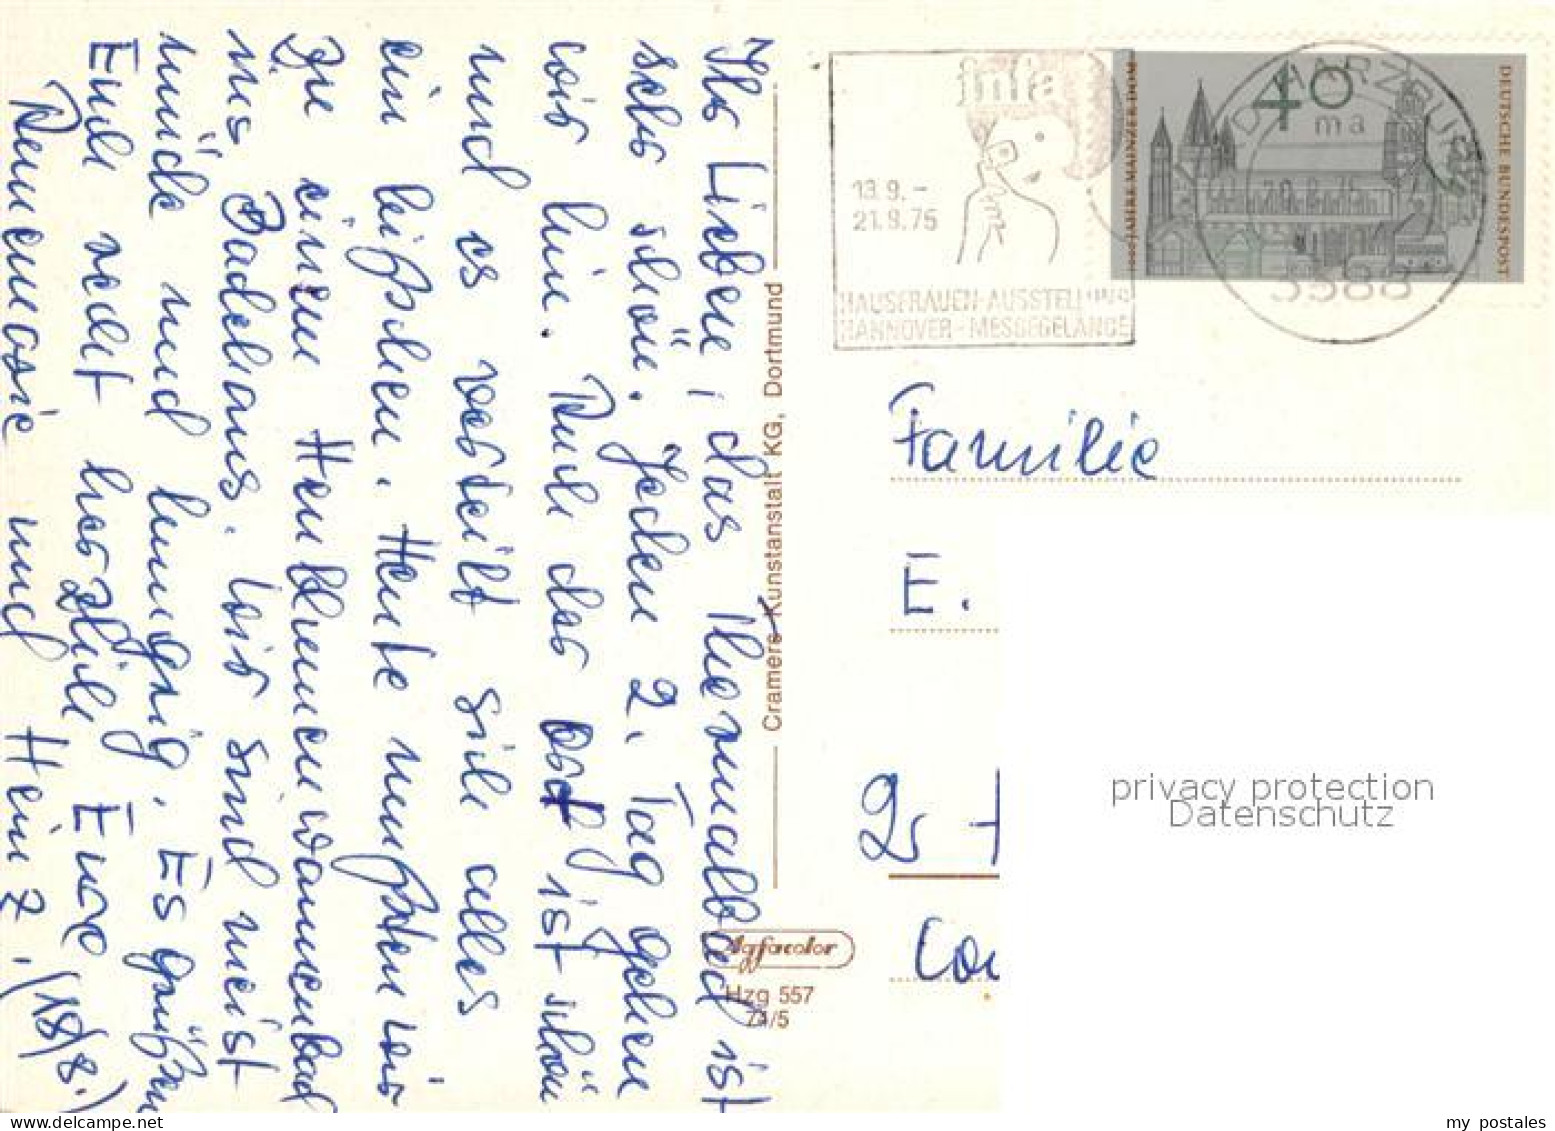 Ihr Lieben, das Thermalbad ist
sehr schön. Jeden 2. Tag gehen
wir hin. Auch der Ort ist schön
und es verteilt sich alles
ein bißchen. Heute mußten wir
zu einem Henkhemenwannenbad
ins Badehaus. Wir sind meist
müde und hungrig. Es grüßen
Euch recht herzlich Eure
Annemarie und Heinz. (18/8.)
Cramers Kunstanstalt KG, Dortmund
Agfacolor
Hzg 557
74/5
infa
13.9.-
21.9.75
HAUSFRAUEN-AUSSTELLUNG
HANNOVER-MESSEGELÄNDE
40
1000 JAHRE MAINZER DOM
DEUTSCHE BUNDESPOST
BAD HARZBURG
ma
3388
Familie
E.
privacy protection
Datenschutz
my postales